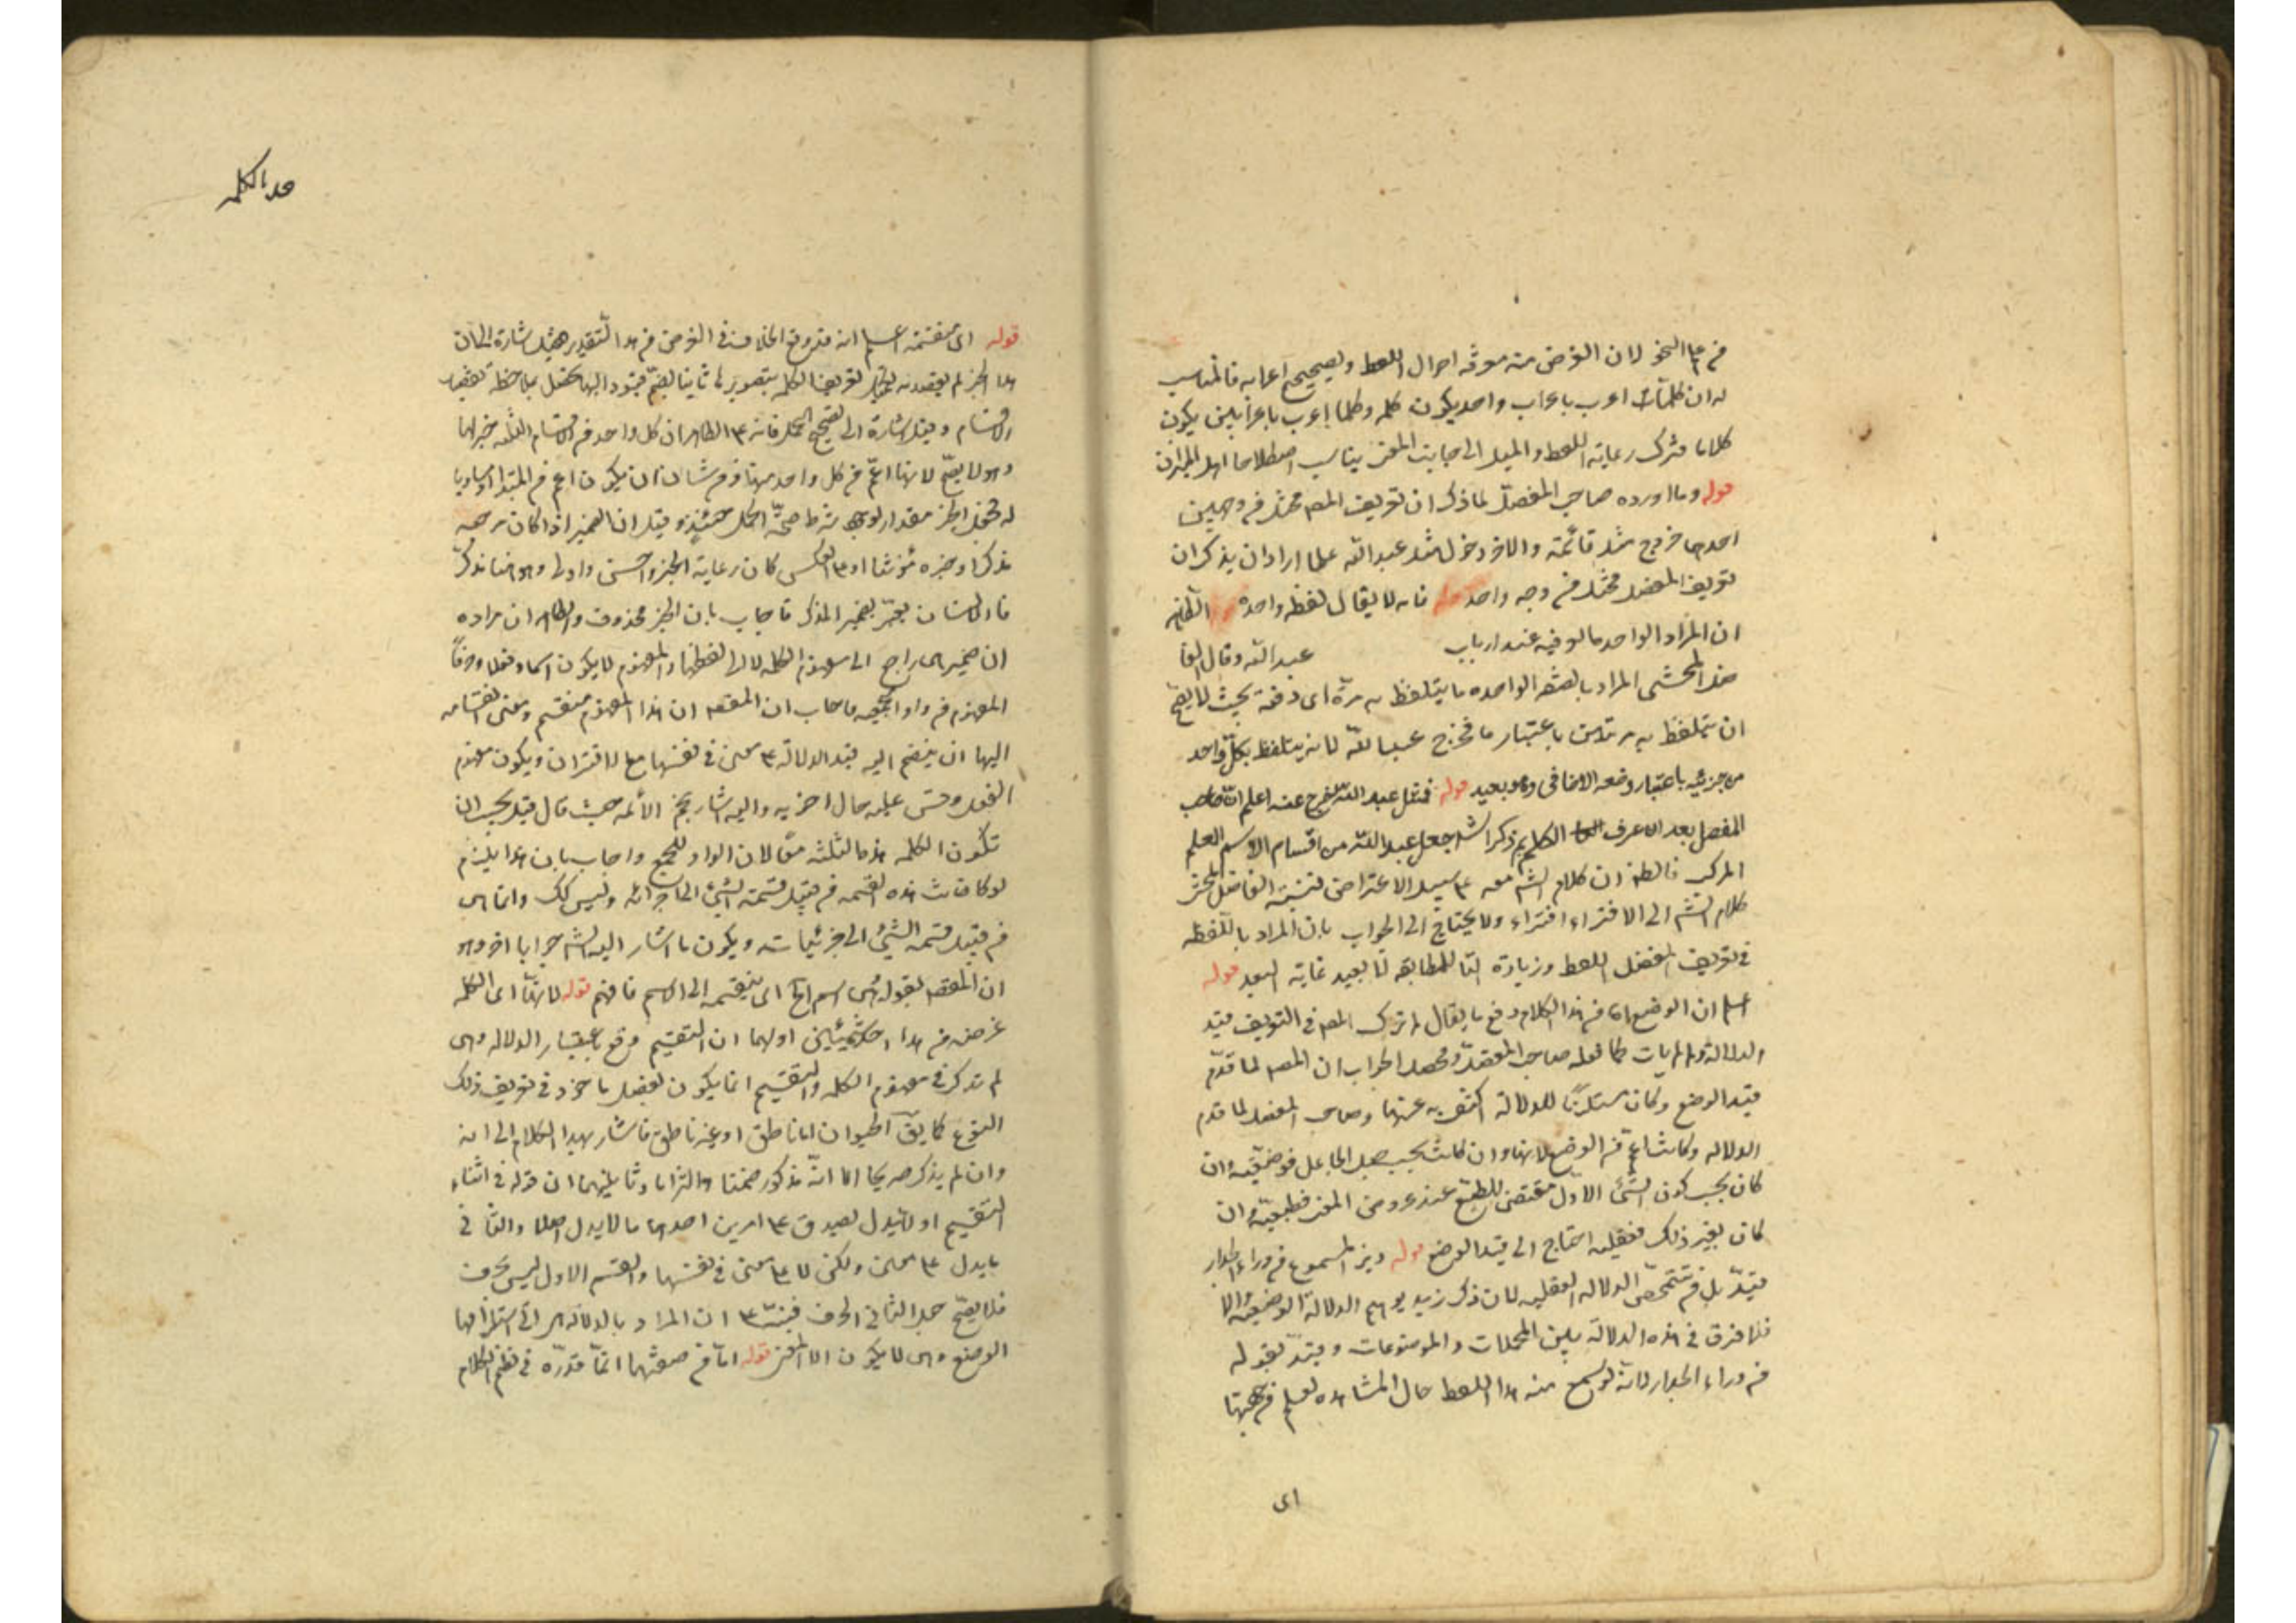 من علم النحو لان الغرض منه معرفة احوال اللفظ وتصحيح اعرابه فالمناسب
له ان كلمات اعرب باعراب واحد يكون كلمه وكلما اعرب باعرابين يكون
كلاما فترك رعاية اللفظ والميل الى جانب المعنى يناسب اصطلاحا اهل الميزان
قوله وما اورده صاحب المفصل لما ذكر ان تعريف المصـ مختل من وجهين
احدهما خروج مثل قائمة والاخر دخول مثل عبد الله علما اراد ان يذكر ان
تعريف المفصل مختل من وجه واحد قوله فانه لا يقال لفظة واحدة الظاهر
ان المراد الواحد مالوفيه عند ارباب عبد الله وقال الفا
ضل المحشى المراد باللفظه الواحده ما يتلفظ به مرة اى دفعة بحيث لا يصح
ان يتلفظ به مرتين باعتبار ما فخرج عبد الله لانه يتلفظ بكل واحد
من جزئيه باعتبار وضعه الاضافى وهو بعيد قوله فمثل عبد الله خرج عنه اعلم ان صاحب
المفصل بعد ان عرف الكلم ثم ذكر جعل عبد الله من اقسام الاسم العلم
المركب فالظ ان كلام الشـ معه على سبيل الاعتراض فنسبة الفاضل المحشى
كلام الشـ الى الافتراء افتراء ولا يحتاج الى الجواب بان المراد باللفظه
فى تعريف المفصل اللفظ وزيادة التا للمطابقه لما بعيد غاية البعد قوله
اعلم ان الوضع اه من هذا الكلام دفع ما يقال لم ترك المصـ فى التعريف قيد
الدلالة ولم يات كما فعله صاحب المفصل ومحصل الجواب ان المصـ لما قدم
قيد الوضع وكان مستلزما للدلالة اكتفى به عنها وصاحب المفصل لما قدم
الدلاله وكانت اعم من الوضع لانها وان كانت بحسب جعل الجاعل فوضعية وان
كان بحسب كون الشئ الاول مقتضى للطبع عند عروض المعنى فطبعية وان
كان بغير ذلك فعقلية احتاج الى قيد الوضع قوله ديز المسموع من وراء الجدار
قيد بل من تتمحض الدلاله العقليه لان ذكر زيد يوهم الدلالة الوضعية والا
فلا فرق فى هذه الدلالة بين المهملات والموضوعات وقيد بقوله
من وراء الجدار لانه لو سمع منه هذا اللفظ حال المشاهده لعلم من جهتها
اى
حد الكلمه
قوله اى منقسمة اعلم انه قد وقع الخلاف فى الغرض من هذا التقدير فقيل اشارة الى ان
هذا الخبر لم يقصد به تعريف الكلمه بتصويرها ثانيا بضم قيود اليها تحصل بملاحظة تقييد
الاقسام وقيل اشارة الى تصحيح الحمل فانه على الظاهر ان كل واحد من الاقسام الثلثه خبر لها
وهو لا يصح لانها اعم من كل واحد منها ومن شان ان يكون اعم من المبتدا او مساويا
له فجعل الخبر مقدار لوجود شرط صحة الحمل حينئذ وقيل ان الضمير اذا كان مرجعه
مذكرا وخبره مؤنثا او على العكس كان رعاية الخبر احسن واولى وهو هنا مذكر
فالاحسان تعبير بضمير المذكر فاجاب بان الخبر محذوف والظاهر ان مراده
ان ضمير هى راجع الى مفهوم الكلمه لا الى لفظها والمفهوم لا يكون اسما وفعلا وحرفا
المفهوم من واو الجمعيه فاجاب ان المقصـ ان هذا المفهوم منقسم ومعنى انقسامه
اليها ان ينضم اليه قيد الدلالة على معنى فى نفسها مع الاقتران ويكون مفهوم
الفعل وقس عليه حال اخريه واليه اشار نجم الائمه حيث قال قيل يجب ان
تكون الكلمه هذه الثلثه معا لان الواو للجمع واجاب بان هذا يلزم
لو كانت هذه القسمه من قبيل قسمة الشئ الى اجزائه وليس كك وانما هى
من قبيل قسمة الشئ الى جزئياته ويكون ما اشار اليه الشـ جوابا اخر وهو
ان المقصـ بقوله هى اسم اه اى منقسمه الى الاسم فافهم قوله لانها اى الكلمه
غرضه من هذا احد شيئين اولهما ان التقسيم وقع باعتبار الدلاله وهى
لم تذكر فى مفهوم الكلمه والتقسيم انما يكون بفصل ماخوذ فى تعريف ذلك
النوع كما يق الحيوان اما ناطق او غير ناطق فاشار بهذا الكلام الى انه
وان لم يذكر صريحا الا انه مذكور ضمنا والتزاما وثانيهما ان قوله فى اثناء
التقسيم او لا تدل يصدق على امرين احدهما ما لا يدل اصلا والثانى
ما يدل على معنى ولكن لا على معنى فى نفسها والقسم الاول ليس بحرف
فلا يصح حمل الثانى الحرف فبنـه على ان المراد بالدلاله هى التى استلزامها
الوضع وهى لا يكون الا المعنى قوله اما من صفتها انما قدره فى نظم الكلام